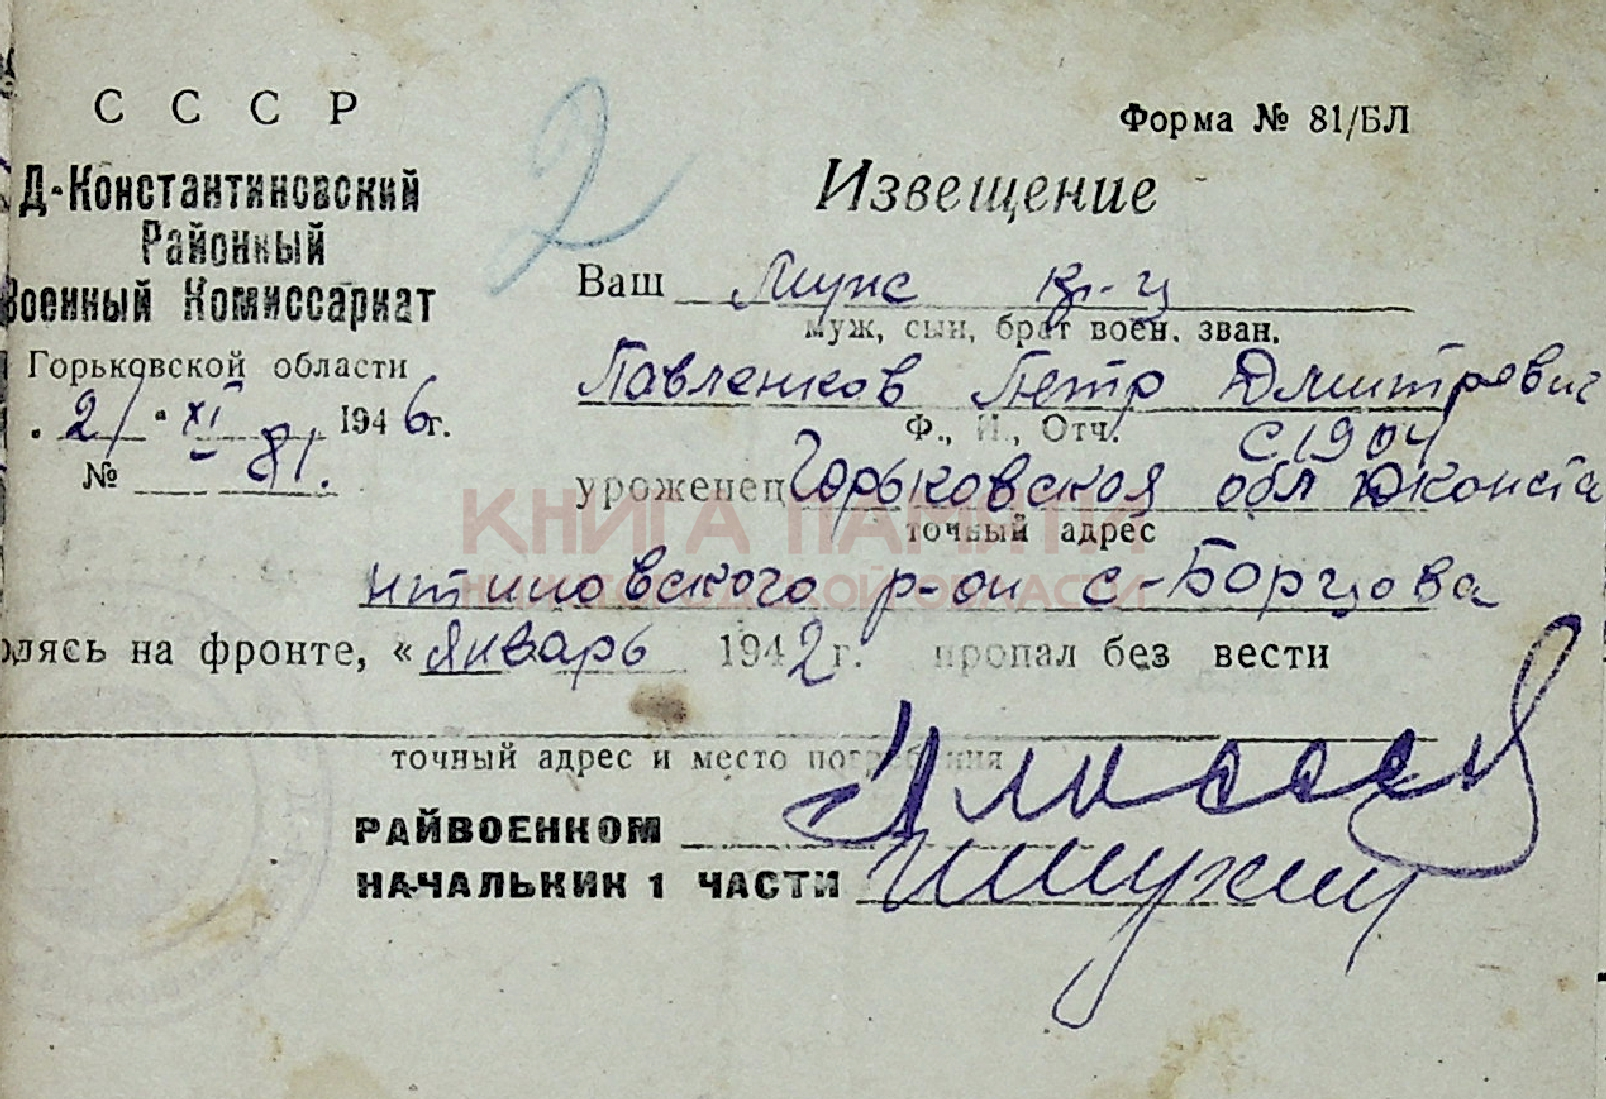 СССР
Д-Константиновский
Районный
Военный Комиссариат
Горьковской области
21 XI 1946 г.
№ 81.
2
Форма № 81/БЛ
Извещение
Ваш муж кр-ц
муж, сын, брат воен. зван.
Павленков Петр Дмитрович
Ф., И., Отч. с 1904
уроженец Горьковская обл Дконста
точный адрес
нтиновского р-он с-Борцова
одясь на фронте, « январь 1942 г. пропал без вести
точный адрес и место погребения
РАЙВОЕНКОМ
НАЧАЛЬНИК 1 ЧАСТИ
КНИГА ПАМЯТИ
НИЖЕГОРОДСКОЙ ОБЛАСТИ